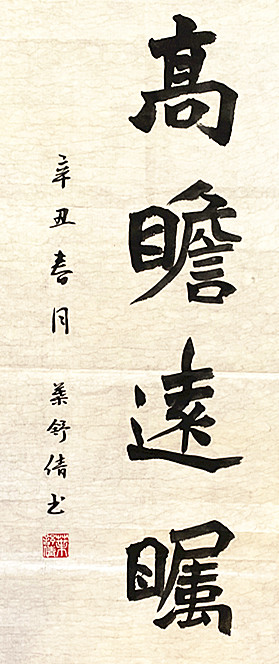 高瞻遠矚
辛丑春月 葉舒倩书